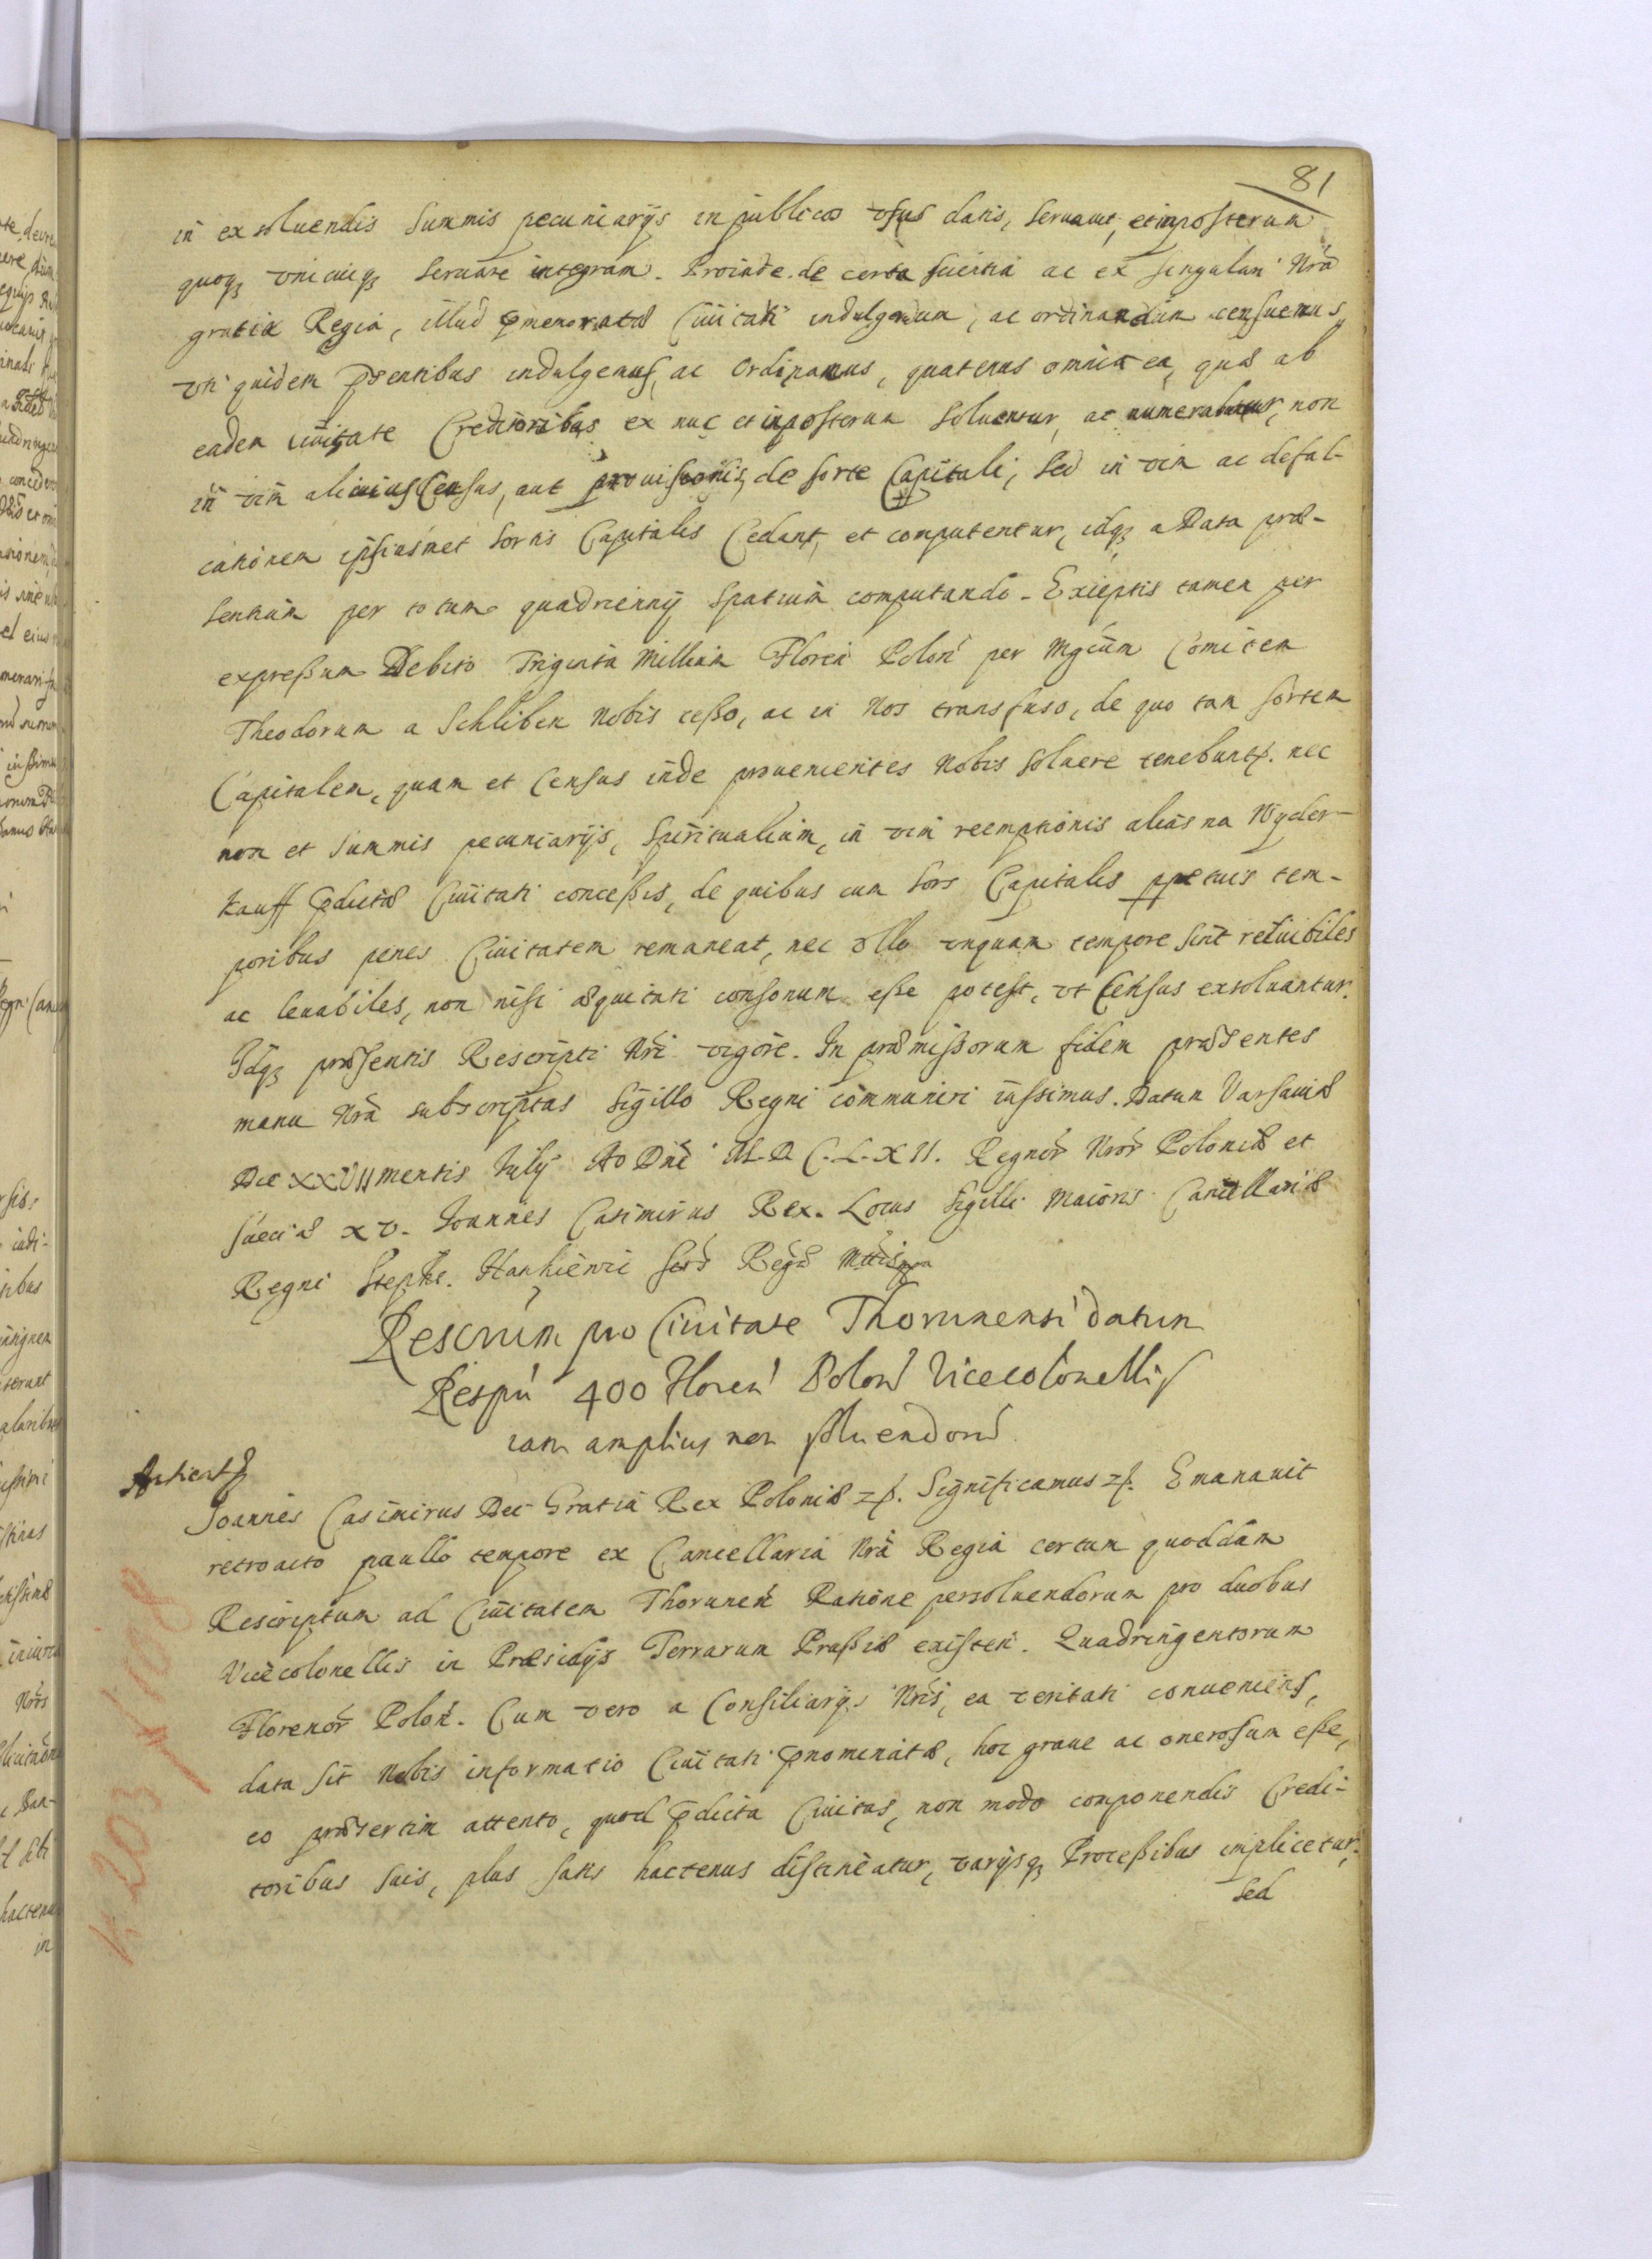 81
in exsoluendis summis pecuniarijs in publicos vsus datis, seruauit, et inposterum
quoqз vnicuiqз seruare integram. Proinde de certa scientia ac ex singulari Nrã
gratia Regia, illud pmemoratæ Ciuitati indulgendum, ac ordinandum censuimus,
vti quidem pñtibus indulgemus, ac Ordinamus, quatenus omnia ea, quæ ab
eadem ciuitate Creditoribus ex nuc et inposterum soluentur, ac numerabuntur, non
in vim alicuius Census, aut prouisionis, de sorte Capitali, sed in vim ac defal-
cationem ipsiusmet sortis Capitalis Cedant, et computentur, idqз a Data præ-
sentium per totum quadriennij spatium computando. Exceptis tamen per
expreßum Debito Triginta Millium Floren Polon per Mgcum Comitem
Theodorum a Schliben Nobis ceßo, ac in Nos transfuso, de quo tam sortem
Capitalem, quam et Census inde prouenientes Nobis soluere tenebuntr. nec
non et summis pecuniarijs, Spiritualium, in vim reemptionis alias na Wyder-
kauff pdictæ Ciuitati conceßis, de quibus cum sors Capitalis ppetuis tem-
poribus penes Ciuitatem remaneat, nec vllo vnquam tempore sint reluibiles
ac leuabiles, non nisi æquitati consonum eße potest, vt Census exsoluantur.
Idqз præsentis Rescripti Nri vigore. In præmißorum fidem præsentes
manu Nrã subscriptas Sigillo Regni communiri iussimus. Datum Varsauiæ
Die XXVII mensis Iulij Ao Dni M.D.C.L.XII. Regnor Nror Poloniæ et
Sueciæ XV. Ioannes Casimirus Rex. Locus Sigilli Maioris Cancellariæ
Regni Steph. Hankiewic Secr Regæ Mttis
Rescrum pro Ciuitate Thorunensi datum
Respu 400 Floren Polon Vicecolonellis
iam amplius non soluendoru
Ioannes Casimirus Dei Gratia Rex Poloniæ zc. Significamus zc. Emanauit
retroacto paullo tempore ex Cancellaria Nrã Regia certum quoddam
Rescriptum ad Ciuitatem Thorunen Ratione persoluendorum pro duobus
Vicecolonellis in Præsidijs Terrarum Prußiæ existen. Quadringentorum
Florenor Polon. Cum vero a Consiliarijs Nris, ea veritati conueniens,
data sit Nobis informatio Ciuitati pnominatæ, hoc graue ac onerosum eße,
eo præsertim attento, quod pdicta Ciuitas, non modo componendis Credi-
toribus suis, plus satis hactenus distineatur, varijsqз Proceßibus implicetur,
sed